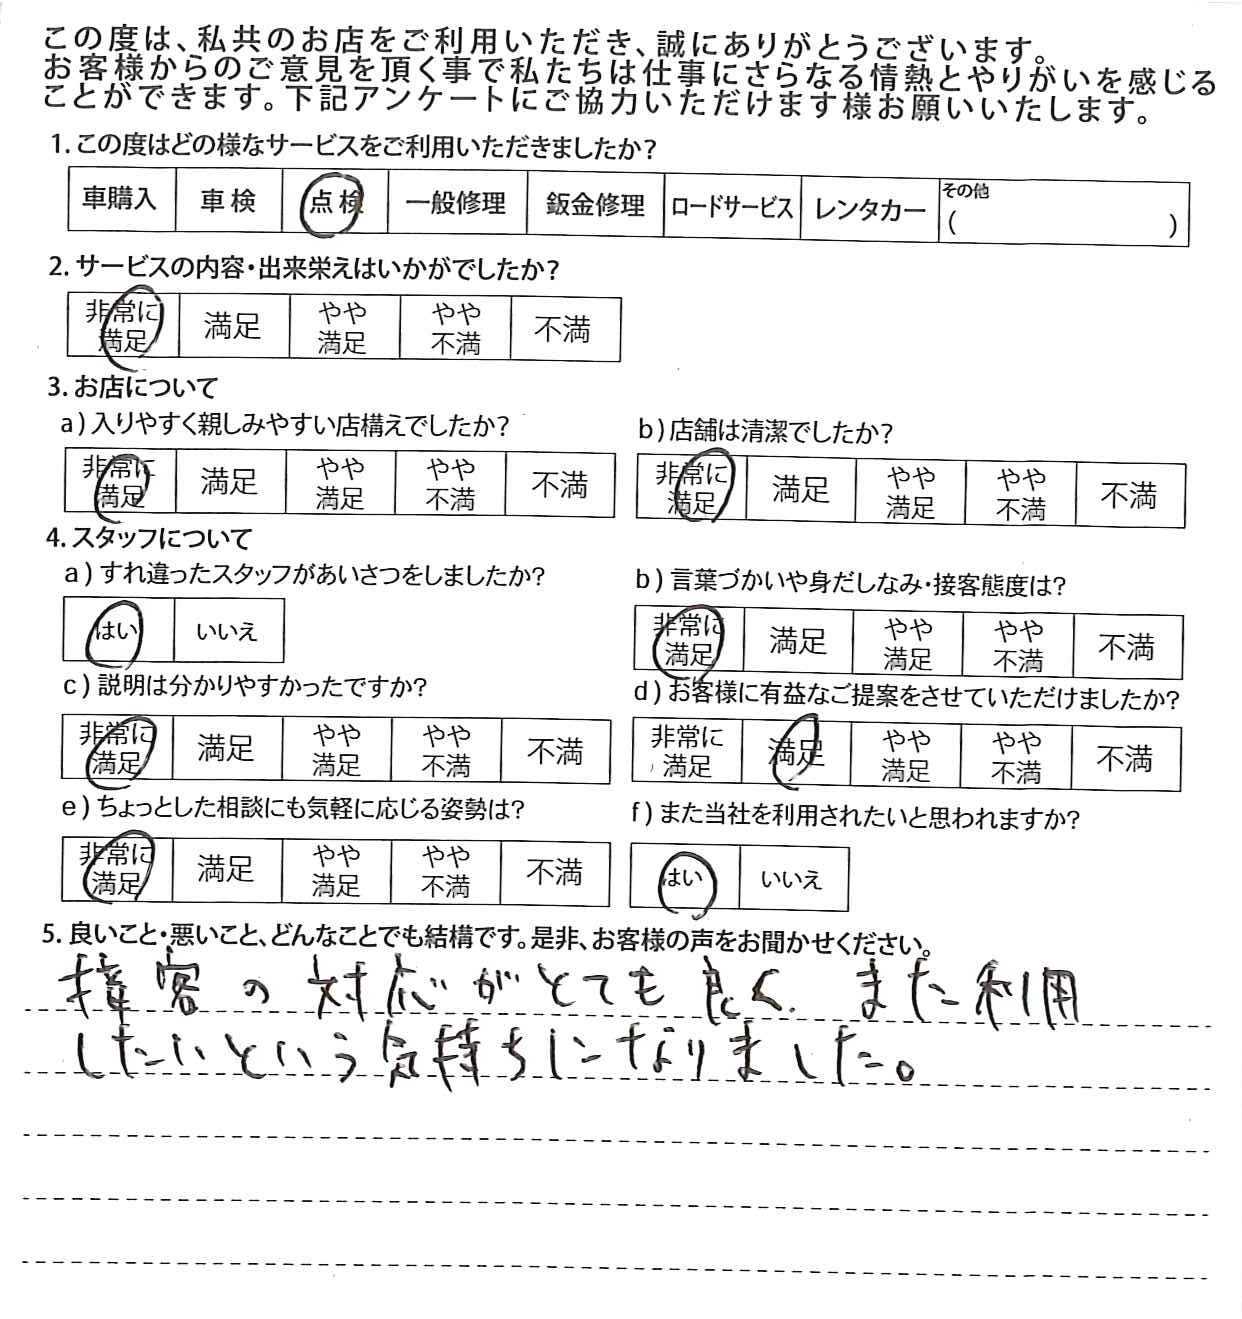 この度は、私共のお店をご利用いただき、誠にありがとうございます。
お客様からのご意見を頂く事で私たちは仕事にさらなる情熱とやりがいを感じる
ことができます。下記アンケートにご協力いただけます様お願いいたします。
1.この度はどの様なサービスをご利用いただきましたか?
車購入 車検 点検 一般修理 鈑金修理 ロードサービス レンタカー その他
( )
2.サービスの内容・出来栄えはいかがでしたか?
非常に満足 満足 やや満足 やや不満 不満
3.お店について
a)入りやすく親しみやすい店構えでしたか?
非常に満足 満足 やや満足 やや不満 不満
b)店舗は清潔でしたか?
非常に満足 満足 やや満足 やや不満 不満
4.スタッフについて
a)すれ違ったスタッフがあいさつをしましたか?
はい いいえ
b)言葉づかいや身だしなみ・接客態度は?
非常に満足 満足 やや満足 やや不満 不満
c)説明は分かりやすかったですか?
非常に満足 満足 やや満足 やや不満 不満
d)お客様に有益なご提案をさせていただけましたか?
非常に満足 満足 やや満足 やや不満 不満
e)ちょっとした相談にも気軽に応じる姿勢は?
非常に満足 満足 やや満足 やや不満 不満
f)また当社を利用されたいと思われますか?
はい いいえ
5.良いこと・悪いこと、どんなことでも結構です。是非、お客様の声をお聞かせください。
接客の対応がとても良く、また利用
したいという気持ちになりました。